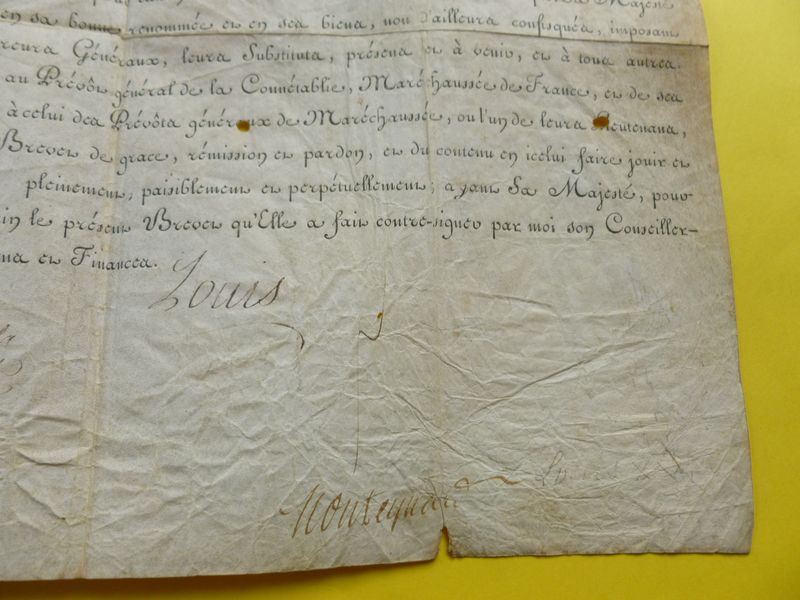 Majesté
en sa bonne renommée et en ses biens, non d'ailleurs confisqués, imposant
reurs Généraux, leurs Substituts, présens et à venir, et à tous autres
au Prévôt général de la Connétablie, Maréchaussée de France, et de ses
à celui des Prévôts généraux de Maréchaussée, ou l'un de leurs Lieutenans,
Brevet de grace, rémission et pardon, et du contenu en icelui faire jouir et
pleinement, paisiblement et perpétuellement; ayant Sa Majesté, pour
in le présent Brevet qu'Elle a fait contre-signer par moi son Conseiller-
ns et Finances.
Louis
Monteynard